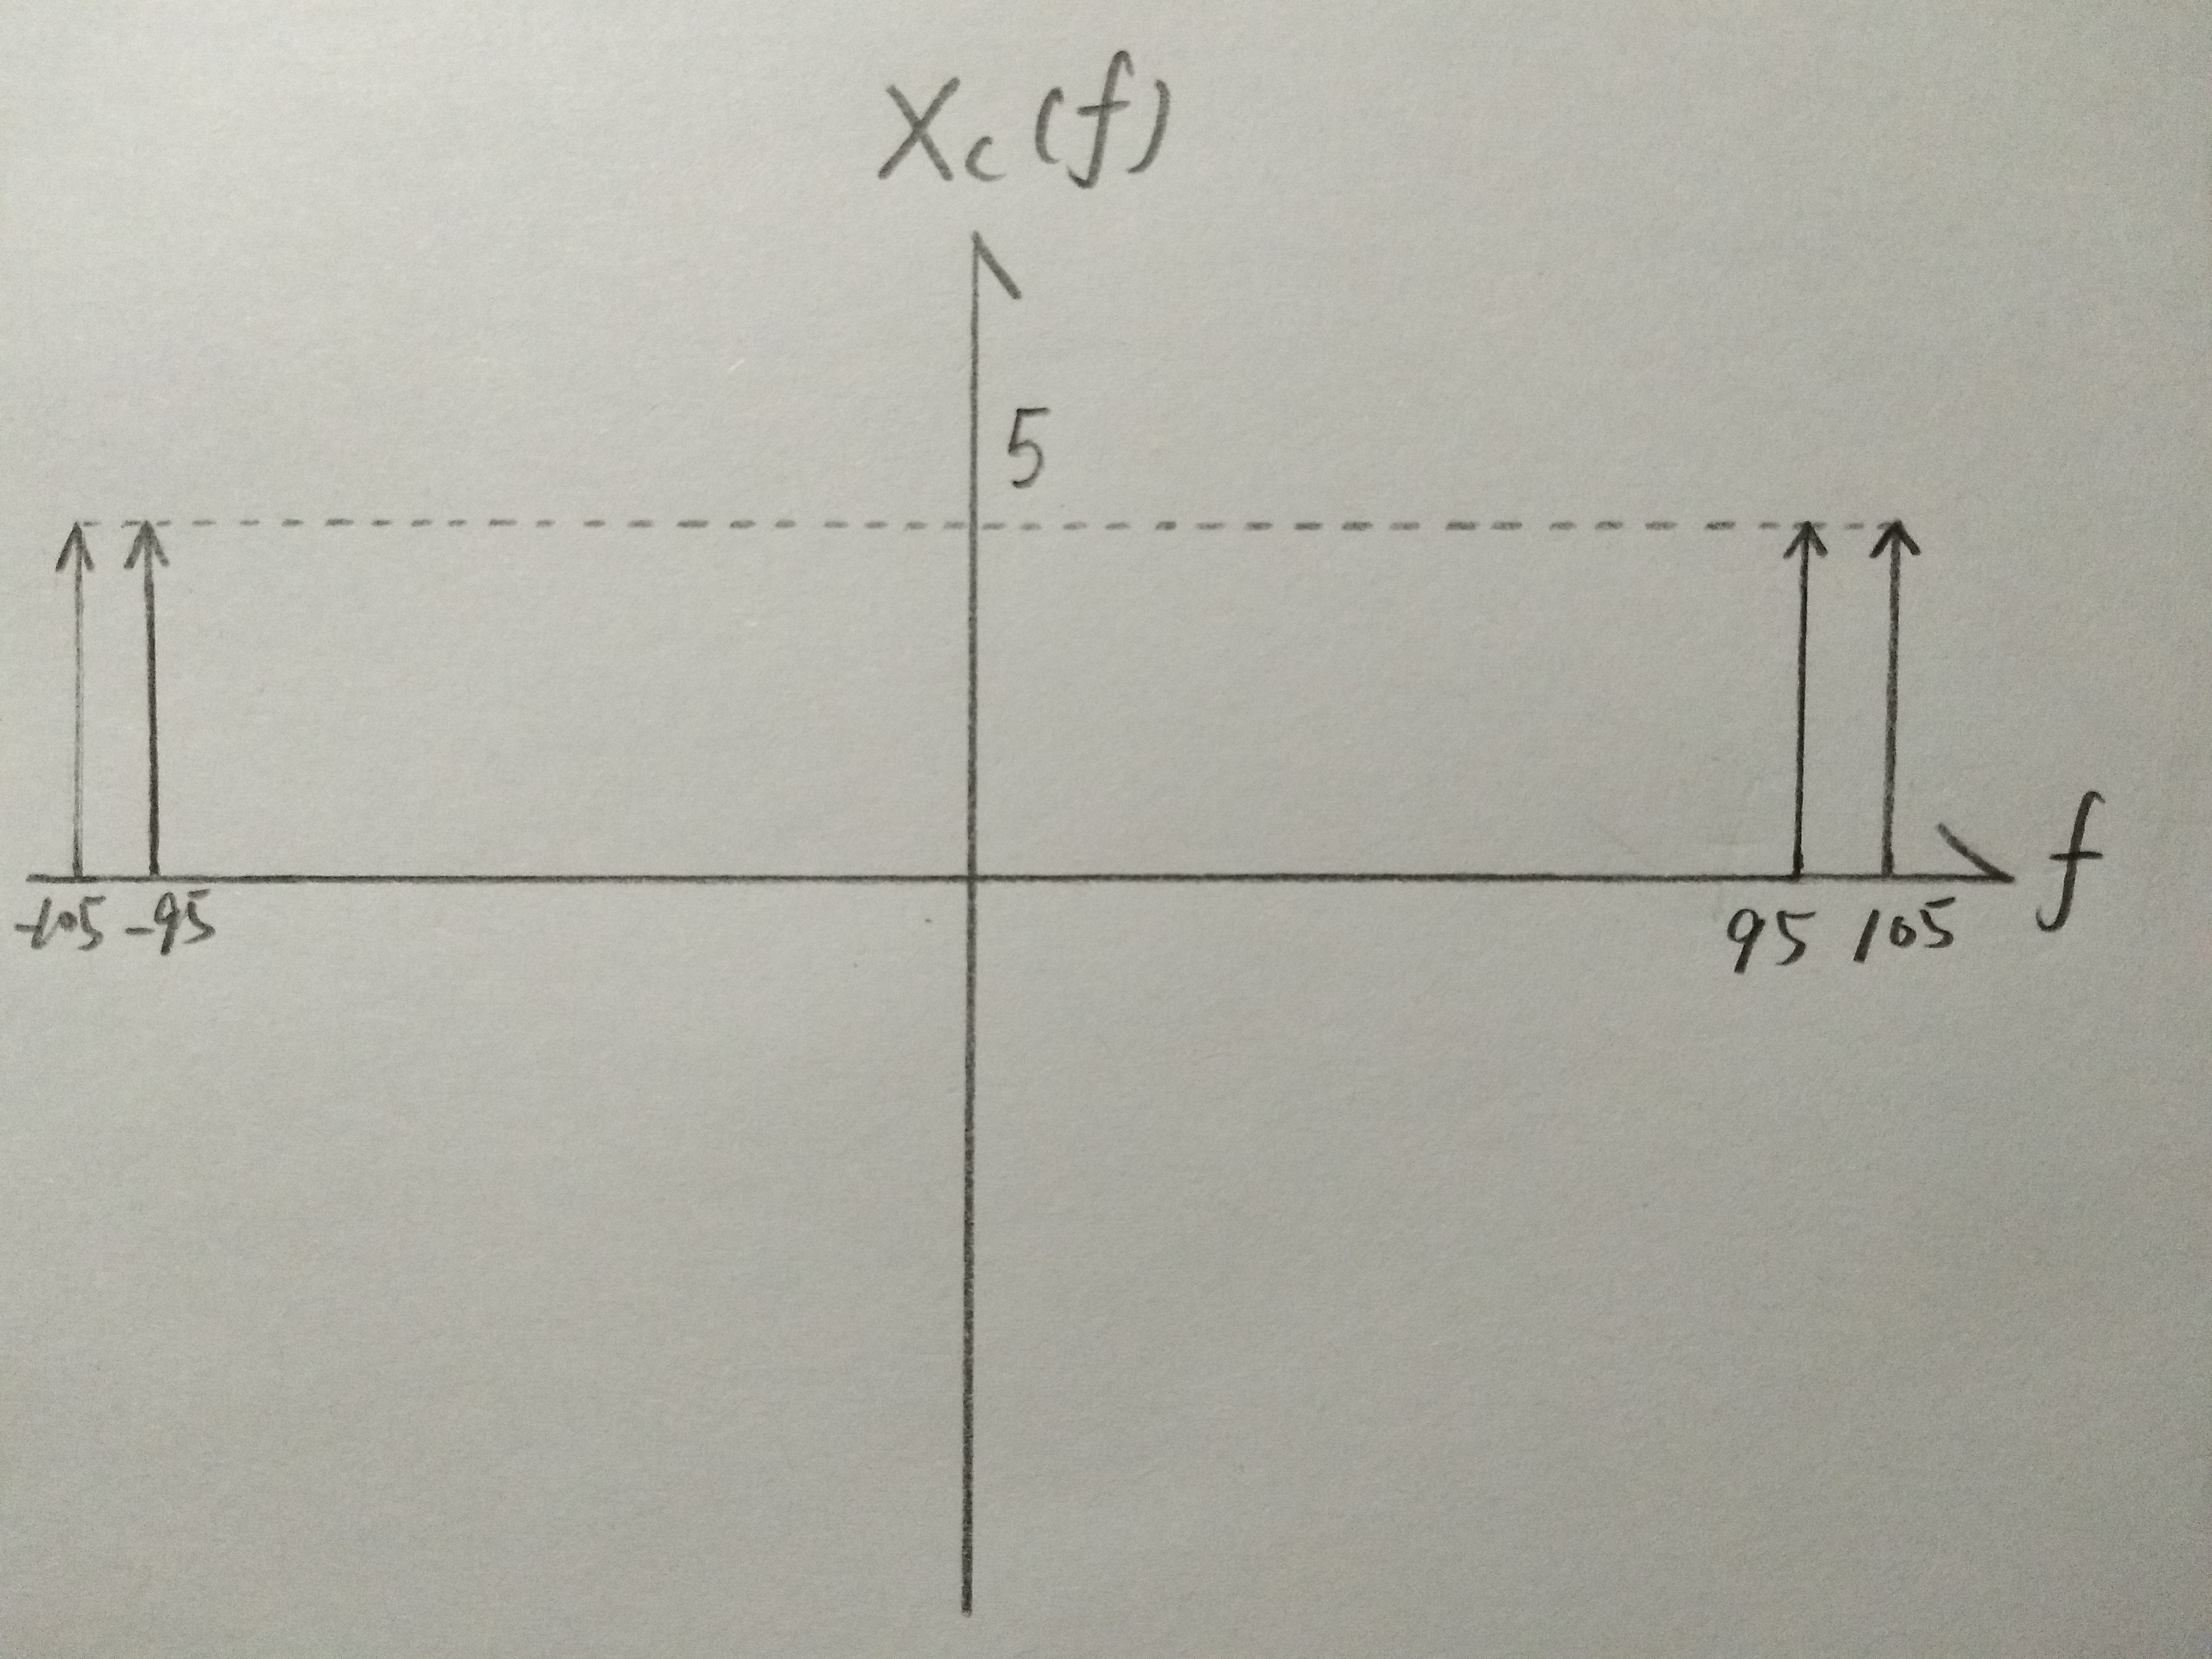 Xc(f)
5
f
-105 -95 95 105